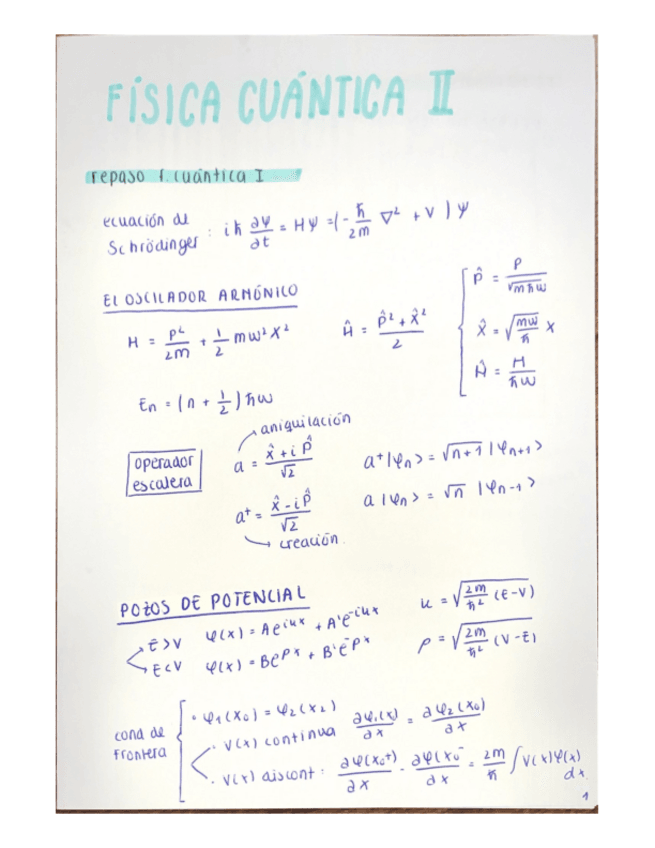 FÍSICA CUÁNTICA II
repaso f. cuántica I
ecuación de Schrödinger : iħ ∂ψ/∂t = Hψ = (- ħ/2m ∇² + V) ψ
EL OSCILADOR ARMÓNICO
H = P²/2m + 1/2 mω²X²
Ĥ = (P̂² + X̂²)/2
P̂ = P/√mħω
X̂ = √(mω/ħ) X
Ĥ = H/ħω
En = (n + 1/2) ħω
operador escalera
aniquilación
a = (X̂ + i P̂)/√2
a⁺ = (X̂ - i P̂)/√2
creación.
a⁺|φn> = √n+1 |φn+1>
a |φn> = √n |φn-1>
POZOS DE POTENCIAL
E>V φ(x) = Ae^iux + A'e^-iux
E<V φ(x) = Be^ρx + B'e^-ρx
u = √(2m/ħ² (E-V))
ρ = √(2m/ħ² (V-E))
cond de frontera
· φ1(x0) = φ2(x2)
· V(x) continua ∂φ1(x)/∂x = ∂φ2(x0)/∂x
· V(x) discont : ∂φ(x0⁺)/∂x - ∂φ(x0⁻/∂x = 2m/ħ ∫V(x)φ(x) dx.
1